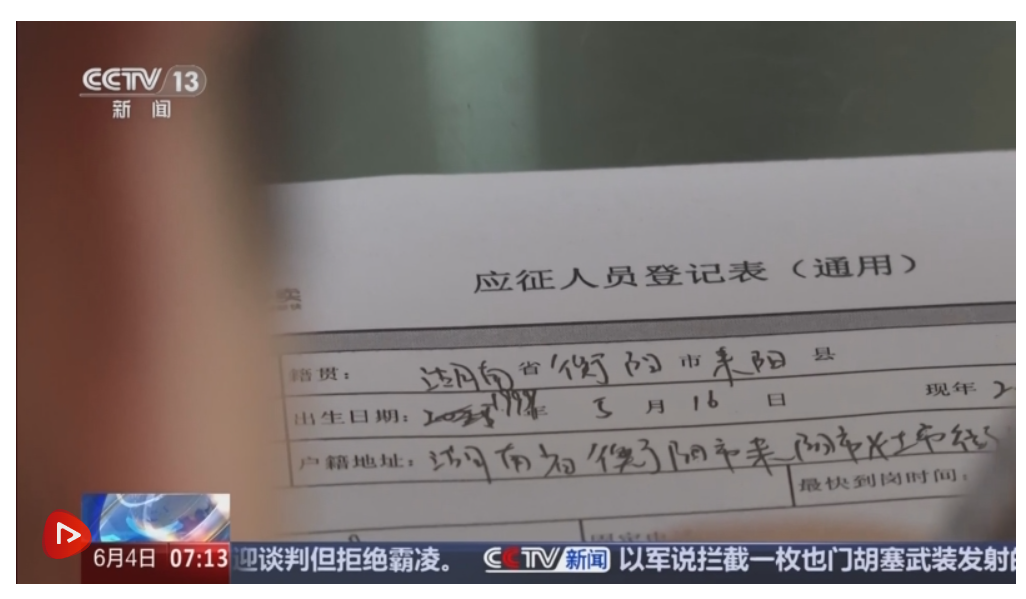 CCTV 13
新闻
应征人员登记表（通用）
籍贯： 湖南省衡阳市耒阳县
出生日期： 1998年 5月16日 现年 2
户籍地址： 湖南省衡阳市耒阳市
最快到岗时间：
6月4日 07:13 迎谈判但拒绝霸凌。 CCTV新闻 以军说拦截一枚也门胡塞武装发射的